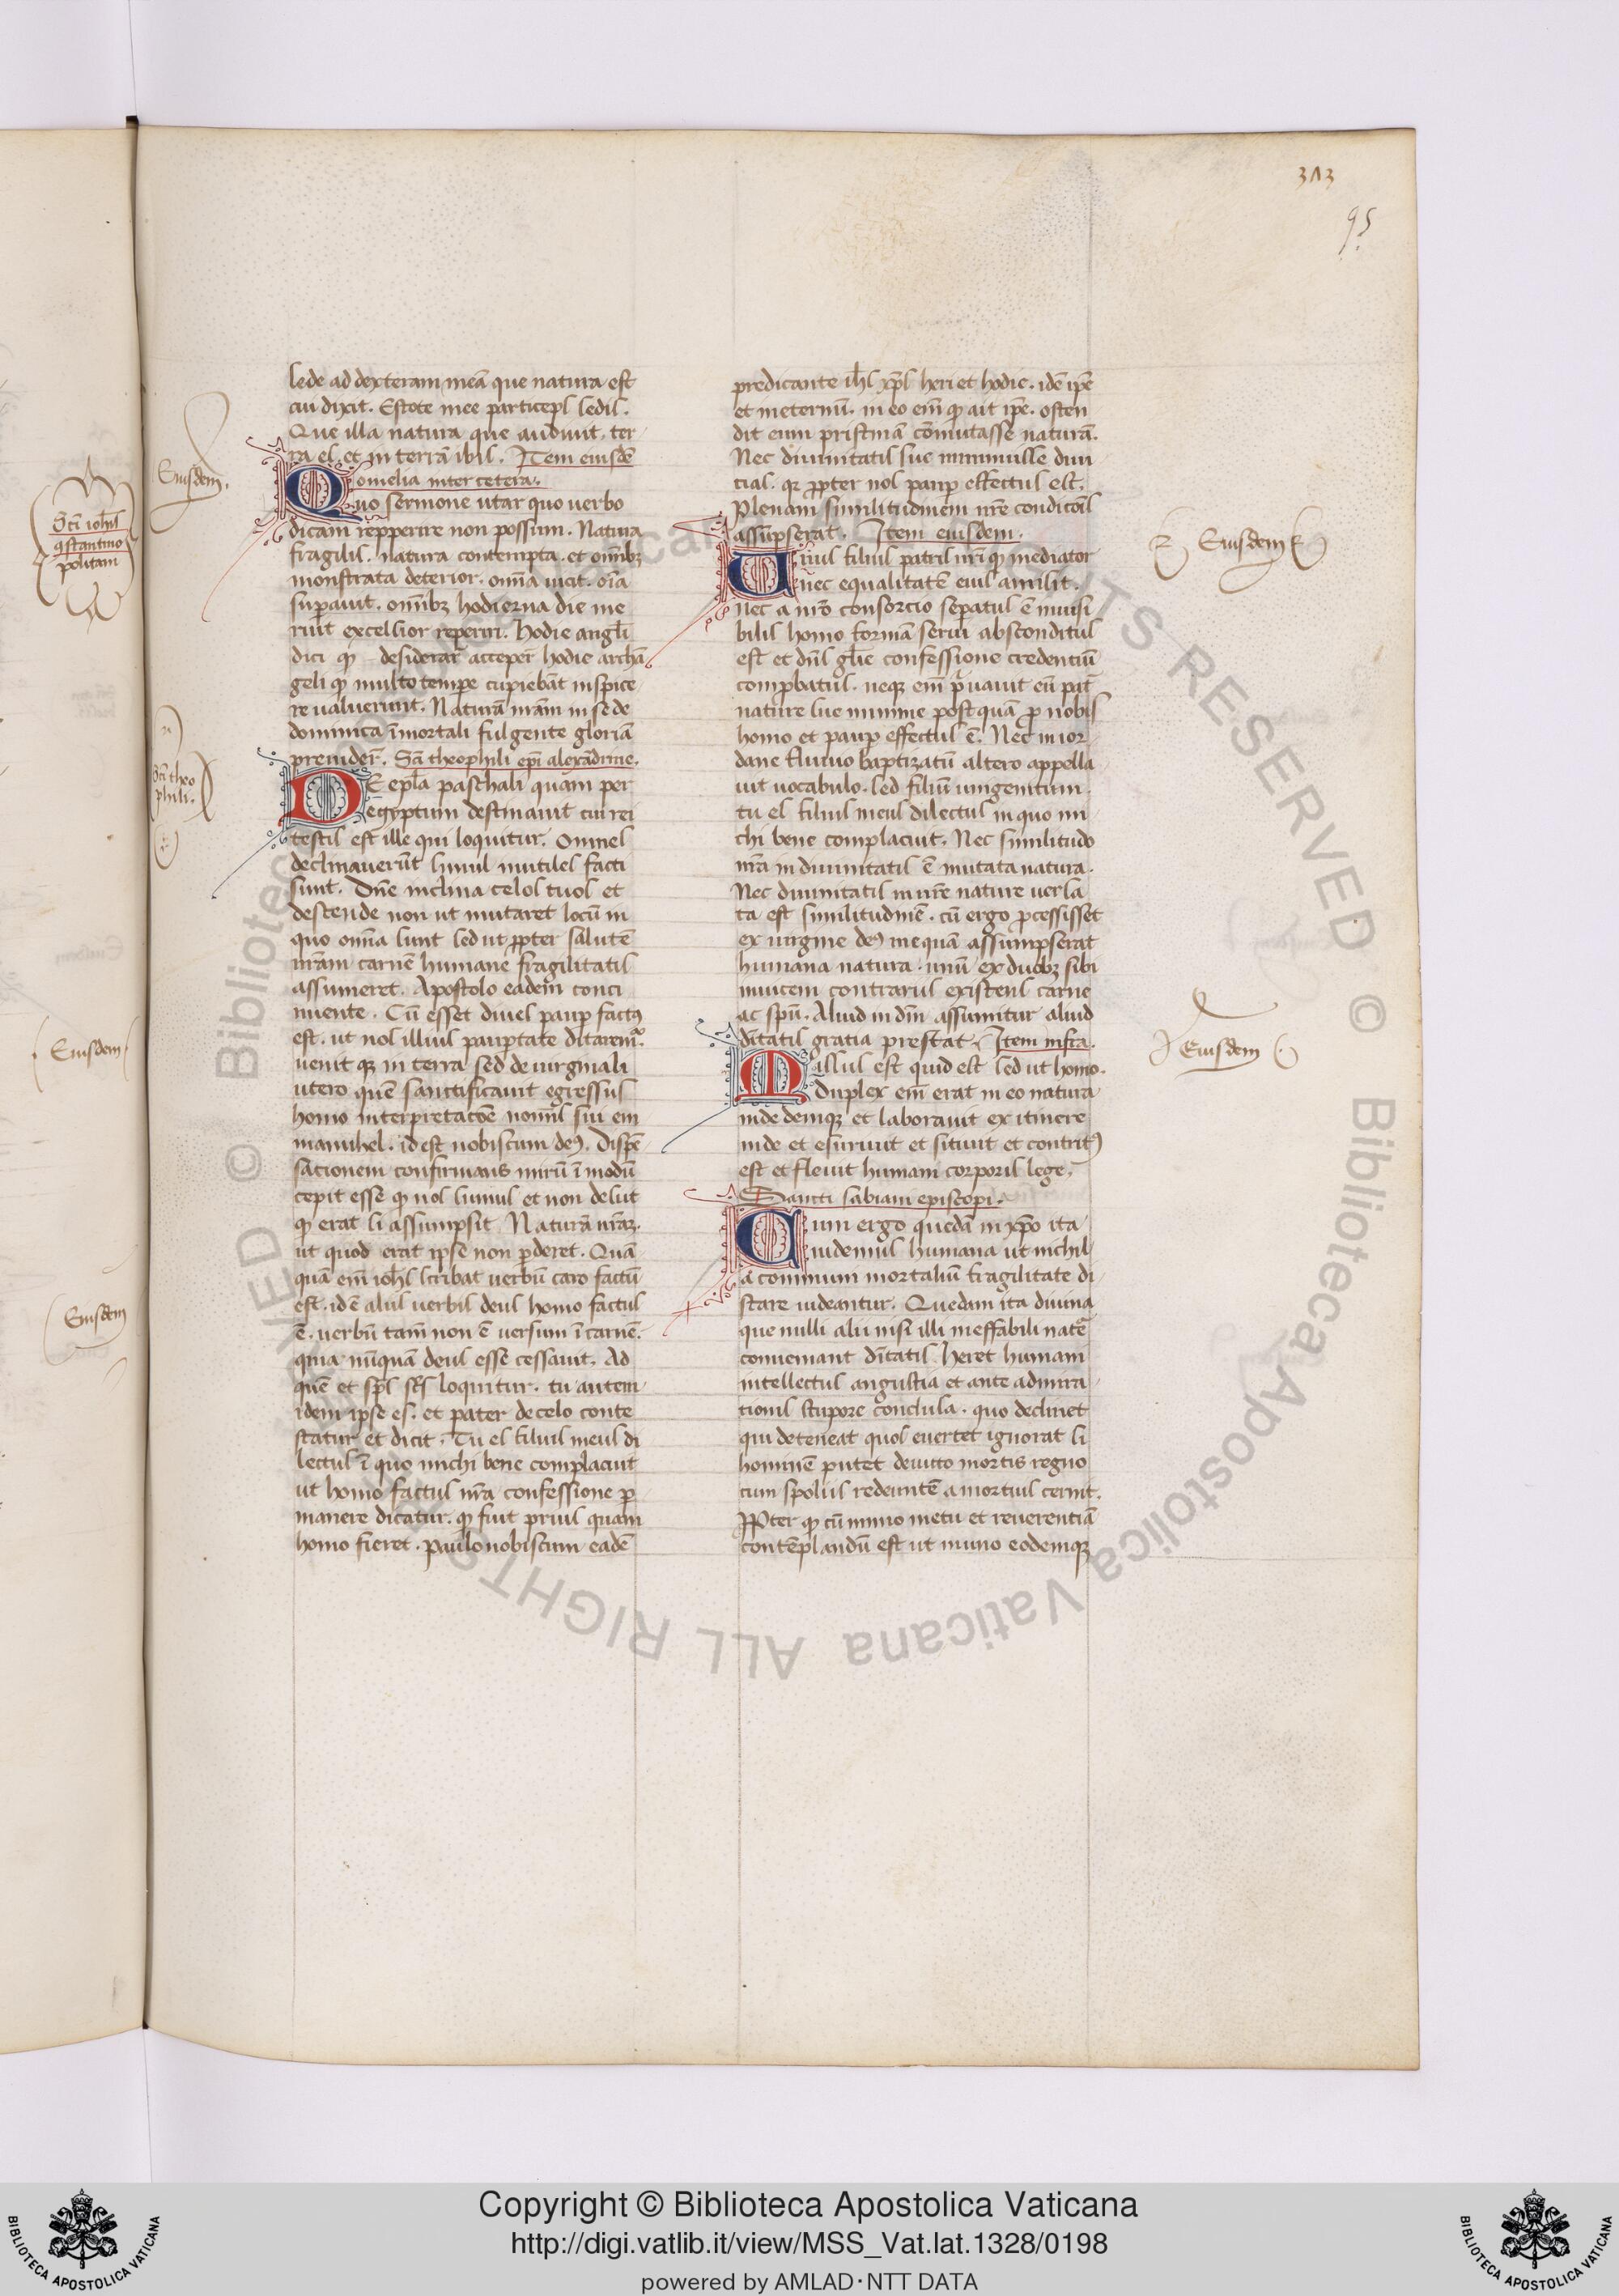 313
95
sede ad dexteram meā que natura est
cui dixit. Estote mee particeps sedis.
Que illa natura que audiuit. ter
ra es. et in terrā ibis. Item eiusdē
Eiusdem.
omelia inter cetera.
Quo sermone utar quo uerbo
dicam repperire non possum. Natura
fragilis. natura contempta. et omībꝫ
monstrata deterior. omīa uicit. oīa
supauit. omībꝫ hodierna die me
ruit excelsior reperiri. Hodie angli
dici qd desiderar̄ acceper̄ hodie archā
geli qd multo tempe cupiebāt inspice
re ualuerunt. Naturā nrām in sede
dominica īmortali fulgente gloriā
preuider̄. Sā theophili epī alexādrine.
Scī theo
phili.
DE epla paschali quam per
egyptum destinauit cui rei
testis est ille qui loquitur. Omnes
declinauerūt simul inutiles facti
sunt. Dne inclina celos tuos et
descende non ut mutaret locū in
quo omīa sunt sed ut ppter salutē
nrām carnē humane fragilitatis
assumeret. Apostolo eadem conci
nente. Cū esset diues paup factꝰ
est. ut nos illius pauptate ditaremᵘʳ.
uenit qꝫ in terra sed de uirginali
utero quē sanctificauit egressus
homo interpretatōē nomīs sui em
manuhel. id est nobiscum deꝰ. Dispē
sationem confirmans mirū ī modū
cepit esse qd nos sumus et non desiit
qd erat si assumpsit Naturā nrāꝫ.
ut quod erat ipse non pderet. Quā
quā em ioh̄s scribat uerbū caro factū
est. id ē aliis uerbis deus homo factus
ē. uerbū tam̄ non ē uersum ī carnē.
quia nūquā deus esse cessauit. Ad
quē et sps scs loquitur. tu autem
idem ipse es. et pater de celo conte
statur et dicit. Tu es filius meus di
lectus ī quo michi bene complacuit
ut homo factus nrā confessione p
manere dicatur. qd fuit prius quam
homo fieret. Paulo nobiscum eadē
predicante ihs xps heri et hodie. idē ipē
et in eternū. in eo em qd ait ipē. osten
dit eum pristinā cōmutasse naturā.
Nec diuinitatis sue minuisse diui
cias. qꝫ ppter nos paup effectus est.
Plenam similitudinem nrē condicōis
assūpserat. Item eiusdem.
Eiusdem
Unus filius patris nriqꝫ mediator
nec equalitatē eius amisit.
nec a nrō consorcio sepatus ē inuisi
bilis homo formā serui absconditus
est et dns glīe confessione credentiū
compbatus. neqꝫ em pruauit eū pat
nature sue nimine postquā p nobis
homo et paup effectus ē. Nec in ior
dane fluuio baptizatū altero appella
uit uocabulo. sed filiū unigenitum.
tu es filius meus dilectus in quo mi
chi bene complacuit. Nec similitudo
nrā in diuinitatis ē mutata natura.
Nec diuinitatis in nrē nature uersa
ta est similitudinē. cū ergo pcessisset
ex uirgine deꝰ in ea quā assumpserat
humana natura. unū ex duobꝫ sibi
inuicem contrariis existens carne
ac spū. Aliud in dm̄ assumitur aliud
dītatis gratia prestat. Item infra.
Eiusdem
Missus est quid est sed ut homo.
Duplex em erat in eo natura
inde deniqꝫ et laborauit ex itinere
inde et esuriuit et sitiuit et contritꝰ
est et fleuit humani corporis lege.
Sancti sabiani episcopi.
Cum ergo quedā in xpo ita
uidemus humana ut nichil
a communi mortaliū fragilitate di
stare uideantur. Quedam ita diuina
que nulli alii nisi illi ineffabili natē
conueniant dītatis. Heret humani
intellectus angustia et ante admira
tionis stupore conclusa. quo declinet
qui deteneat quos euertet ignorat si
hominē putet deuicto mortis regno
cum spoliis redeuntē a mortius cernit.
Ppter qd cū nimio metu et reuerentiā
contēplandū est ut in uno eodemqꝫ
Scī iohīs
ꝯstantino
politani
Eiusdem
Eiusdem
Copyright © Biblioteca Apostolica Vaticana
http://digi.vatlib.it/view/MSS_Vat.lat.1328/0198
powered by AMLAD·NTT DATA
BIBLIOTECA APOSTOLICA VATICANA
BIBLIOTECA APOSTOLICA VATICANA